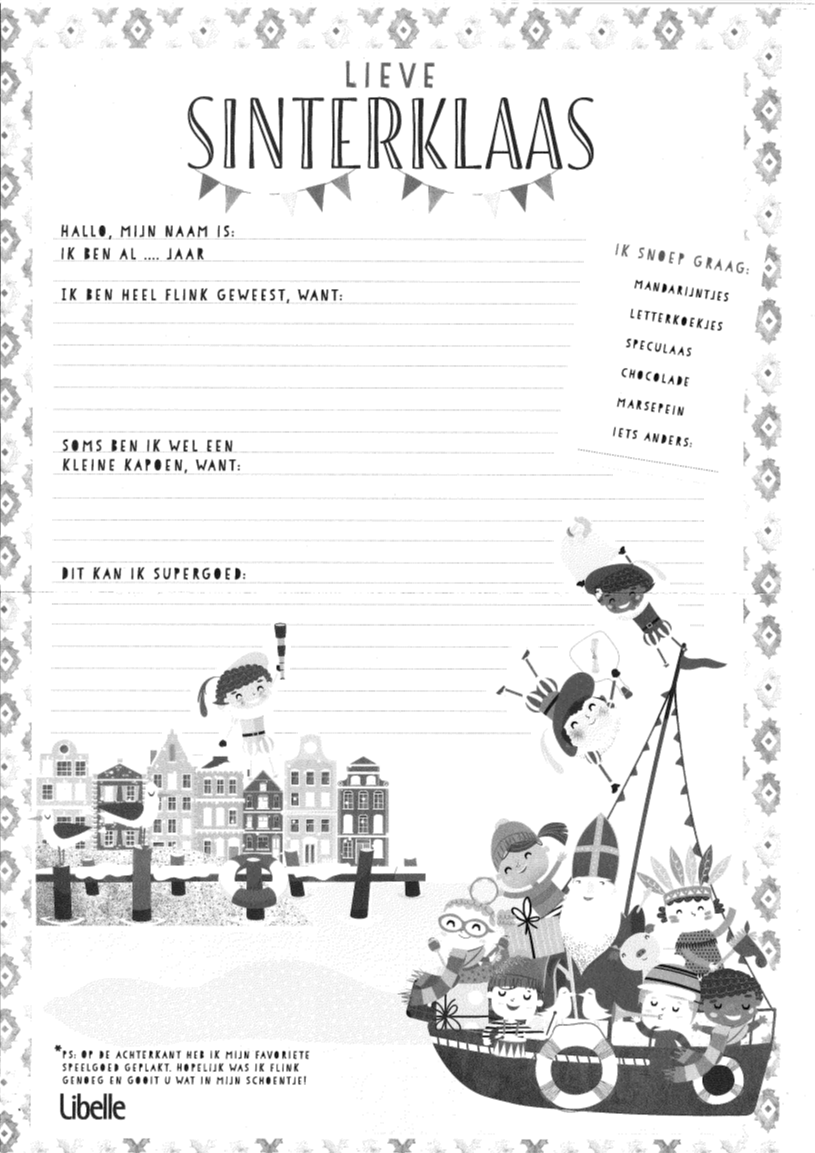 LIEVE
SINTERKLAAS
HALLO, MIJN NAAM IS:
IK BEN AL .... JAAR
IK BEN HEEL FLINK GEWEEST, WANT:
IK SNOEP GRAAG:
MANDARIJNTJES
LETTERKOEKJES
SPECULAAS
CHOCOLADE
MARSEPEIN
IETS ANDERS:
SOMS BEN IK WEL EEN
KLEINE KAPOEN, WANT:
DIT KAN IK SUPERGOED:
*PS: OP DE ACHTERKANT HEB IK MIJN FAVORIETE
SPEELGOED GEPLAKT. HOPELIJK WAS IK FLINK
GENOEG EN GOOIT U WAT IN MIJN SCHOENTJE!
Libelle